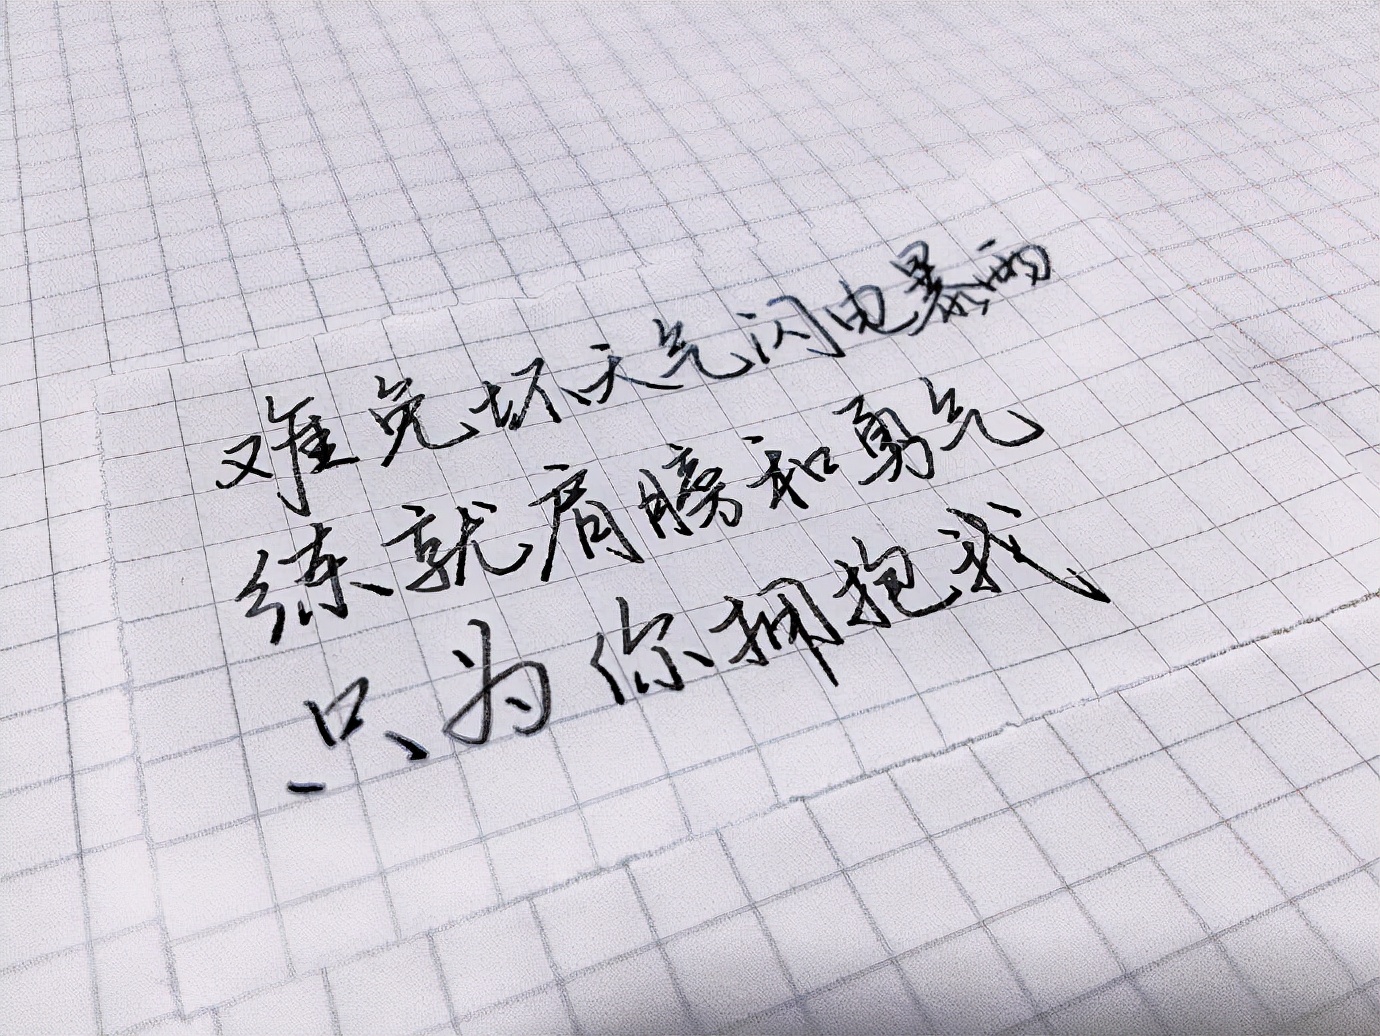 难免坏天气闪电暴雨
练就肩膀和勇气
只为你拥抱我